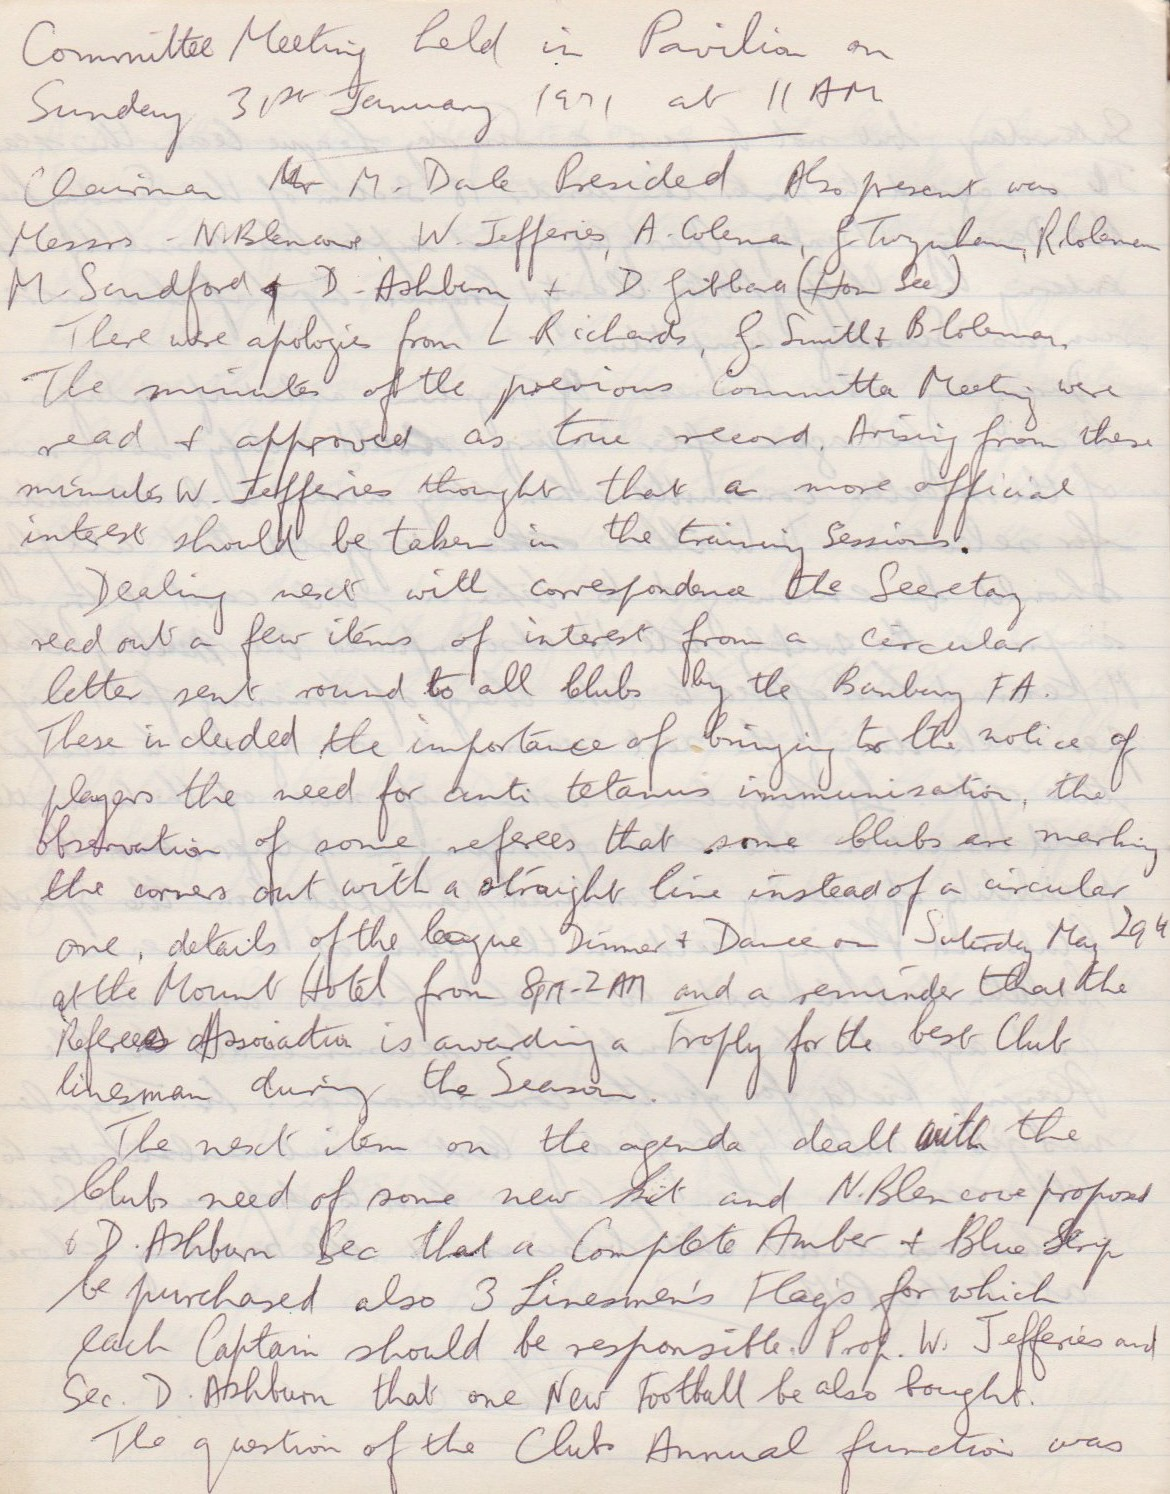 Committee Meeting held in Pavilion on
Sunday 31st January 1971 at 11 AM
Chairman Mr M. Dale Presided Also present was
Messrs - N. Blencowe W. Jefferies, A. Coleman, G Twynham, R. Coleman
M. Sandford & D. Ashburn + D Gibbard (Hon Sec)
There were apologies from L Richards, G. Smith + B Coleman.
The minutes of the previous Committee Meeting were
read + approved as true record. Arising from these
minutes W. Jefferies thought that a more official
interest should be taken in the training Sessions.
Dealing next with correspondence the Secretary
read out a few items of interest from a circular
letter sent round to all Clubs by the Banbury FA.
These included the importance of bringing to the notice of
players the need for anti tetanus immunisation, the
observation of some referees that some Clubs are marking
the corners out with a straight line instead of a circular
one, details of the league Dinner + Dance on Saturday May 29th
at the Mount Hotel from 8PM-2AM and a reminder that the
Referees Association is awarding a Trophy for the best Club
linesman during the Season.
The next item on the agenda dealt with the
Clubs need of some new kit and N. Blencowe proposed
+ D. Ashburn Sec that a Complete Amber + Blue Strip
be purchased also 3 Linesmen's Flags for which
each Captain should be responsible. Prop. W. Jefferies and
Sec. D. Ashburn that one New Football be also bought.
The question of the Clubs Annual function was